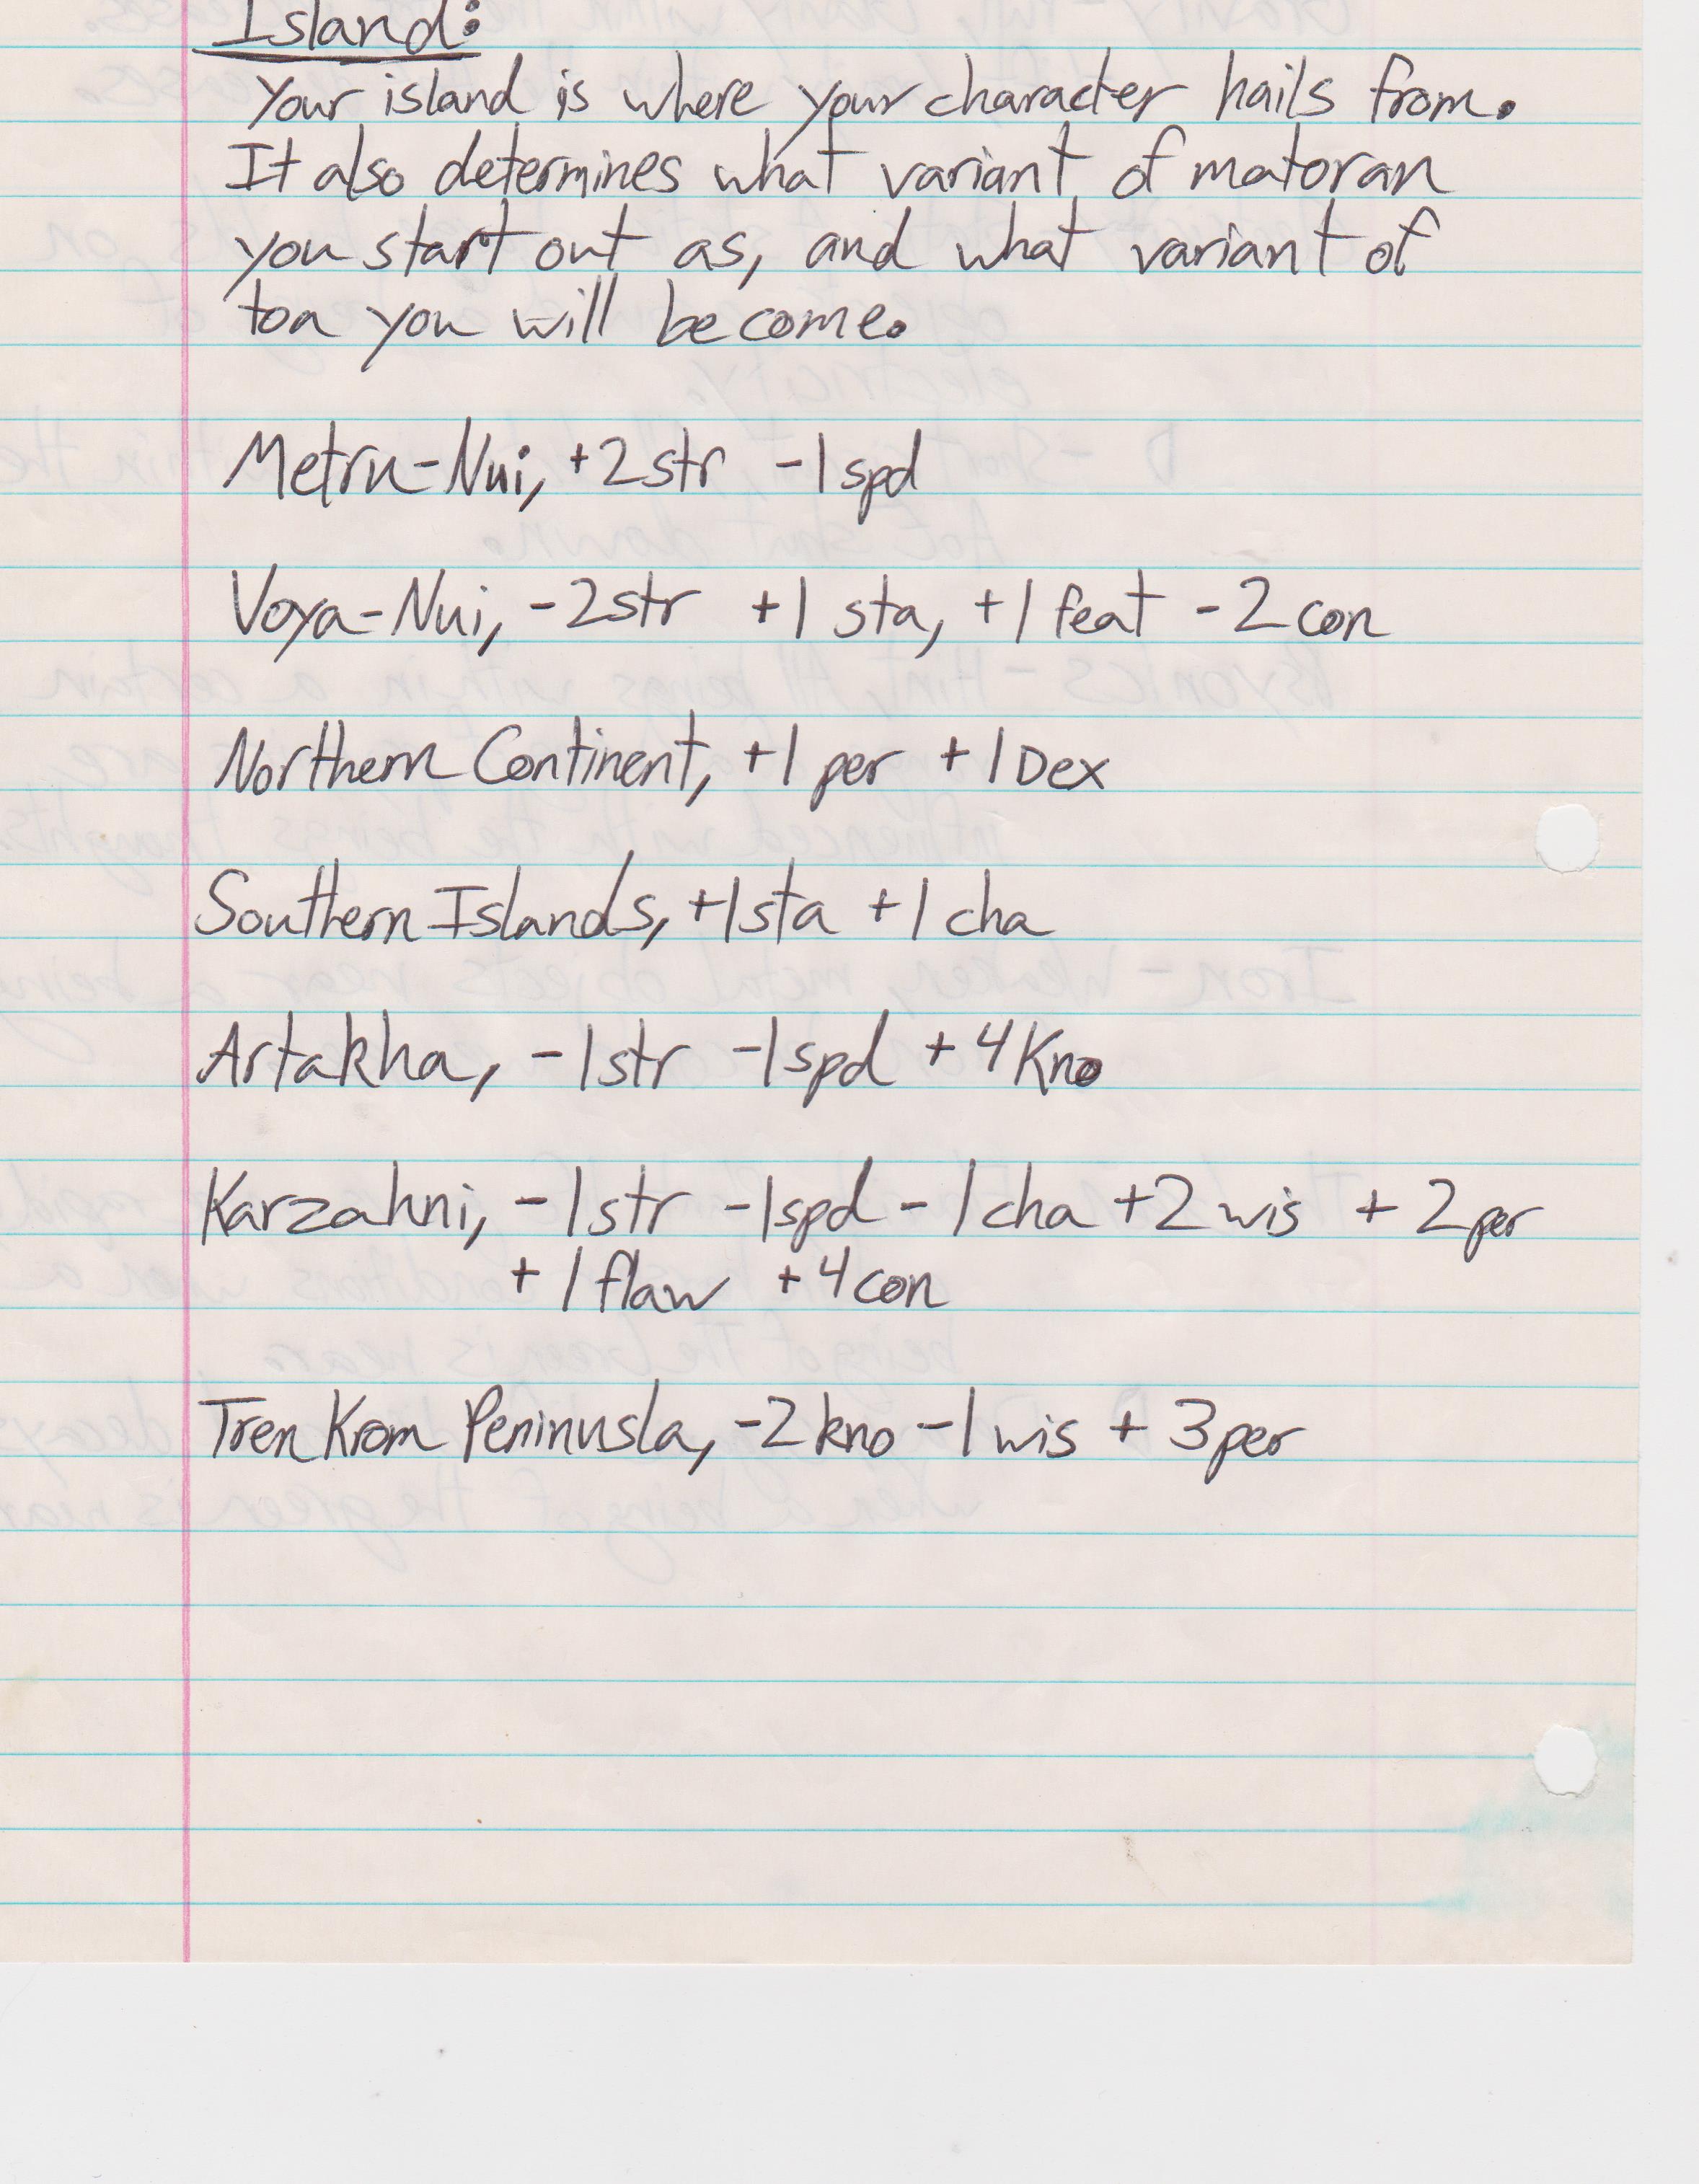 Island:
Your island is where your character hails from.
It also determines what variant of matoran
you start out as, and what variant of
toa you will become.
Metru-Nui, +2str -1spd
Voya-Nui, -2str +1 sta, +1 feat -2con
Northern Continent, +1 per +1Dex
Southern Islands, +1sta +1 cha
Artakha, -1str -1spd +4Kno
Karzahni, -1str -1spd -1cha +2 wis +2per
+1flaw +4con
Tren Krom Peninusla, -2kno -1wis +3per